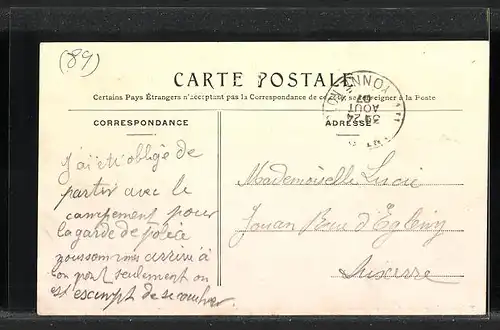 (89)
CARTE POSTALE
Certains Pays Étrangers n'acceptant pas la Correspondance de ce côté se renseigner à la Poste
CORRESPONDANCE
ADRESSE
YONNE
24
AOUT
07
J'ai été obligé de
partir avec le
campement pour
la garde de police
nous sommes arrivé à
bon port seulement on
est exempt de se coucher
Mademoiselle Lucie
Jouan Rue d'Egleny
Auxerre